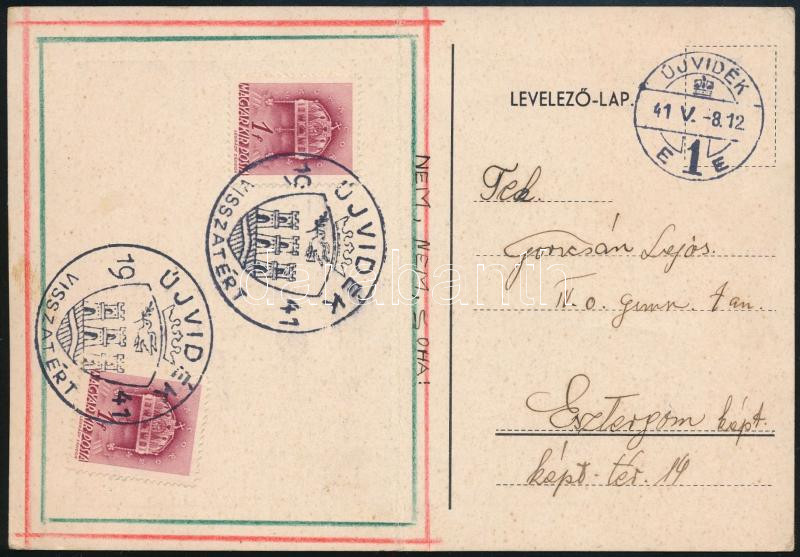 MAGYAR KIR. POSTA
1f
ÚJVIDÉK
VISSZATÉRT
1941
ÚJVIDÉK
VISSZATÉRT
1941
MAGYAR KIR. POSTA
NEM, NEM SOHA!
LEVELEZŐ-LAP.
ÚJVIDÉK
41 V. -8.12
E 1 E
Tek.
Goncsán Lajos
IV. o. gimn. tan.
Esztergom
kápt. tér. 19
darabanth